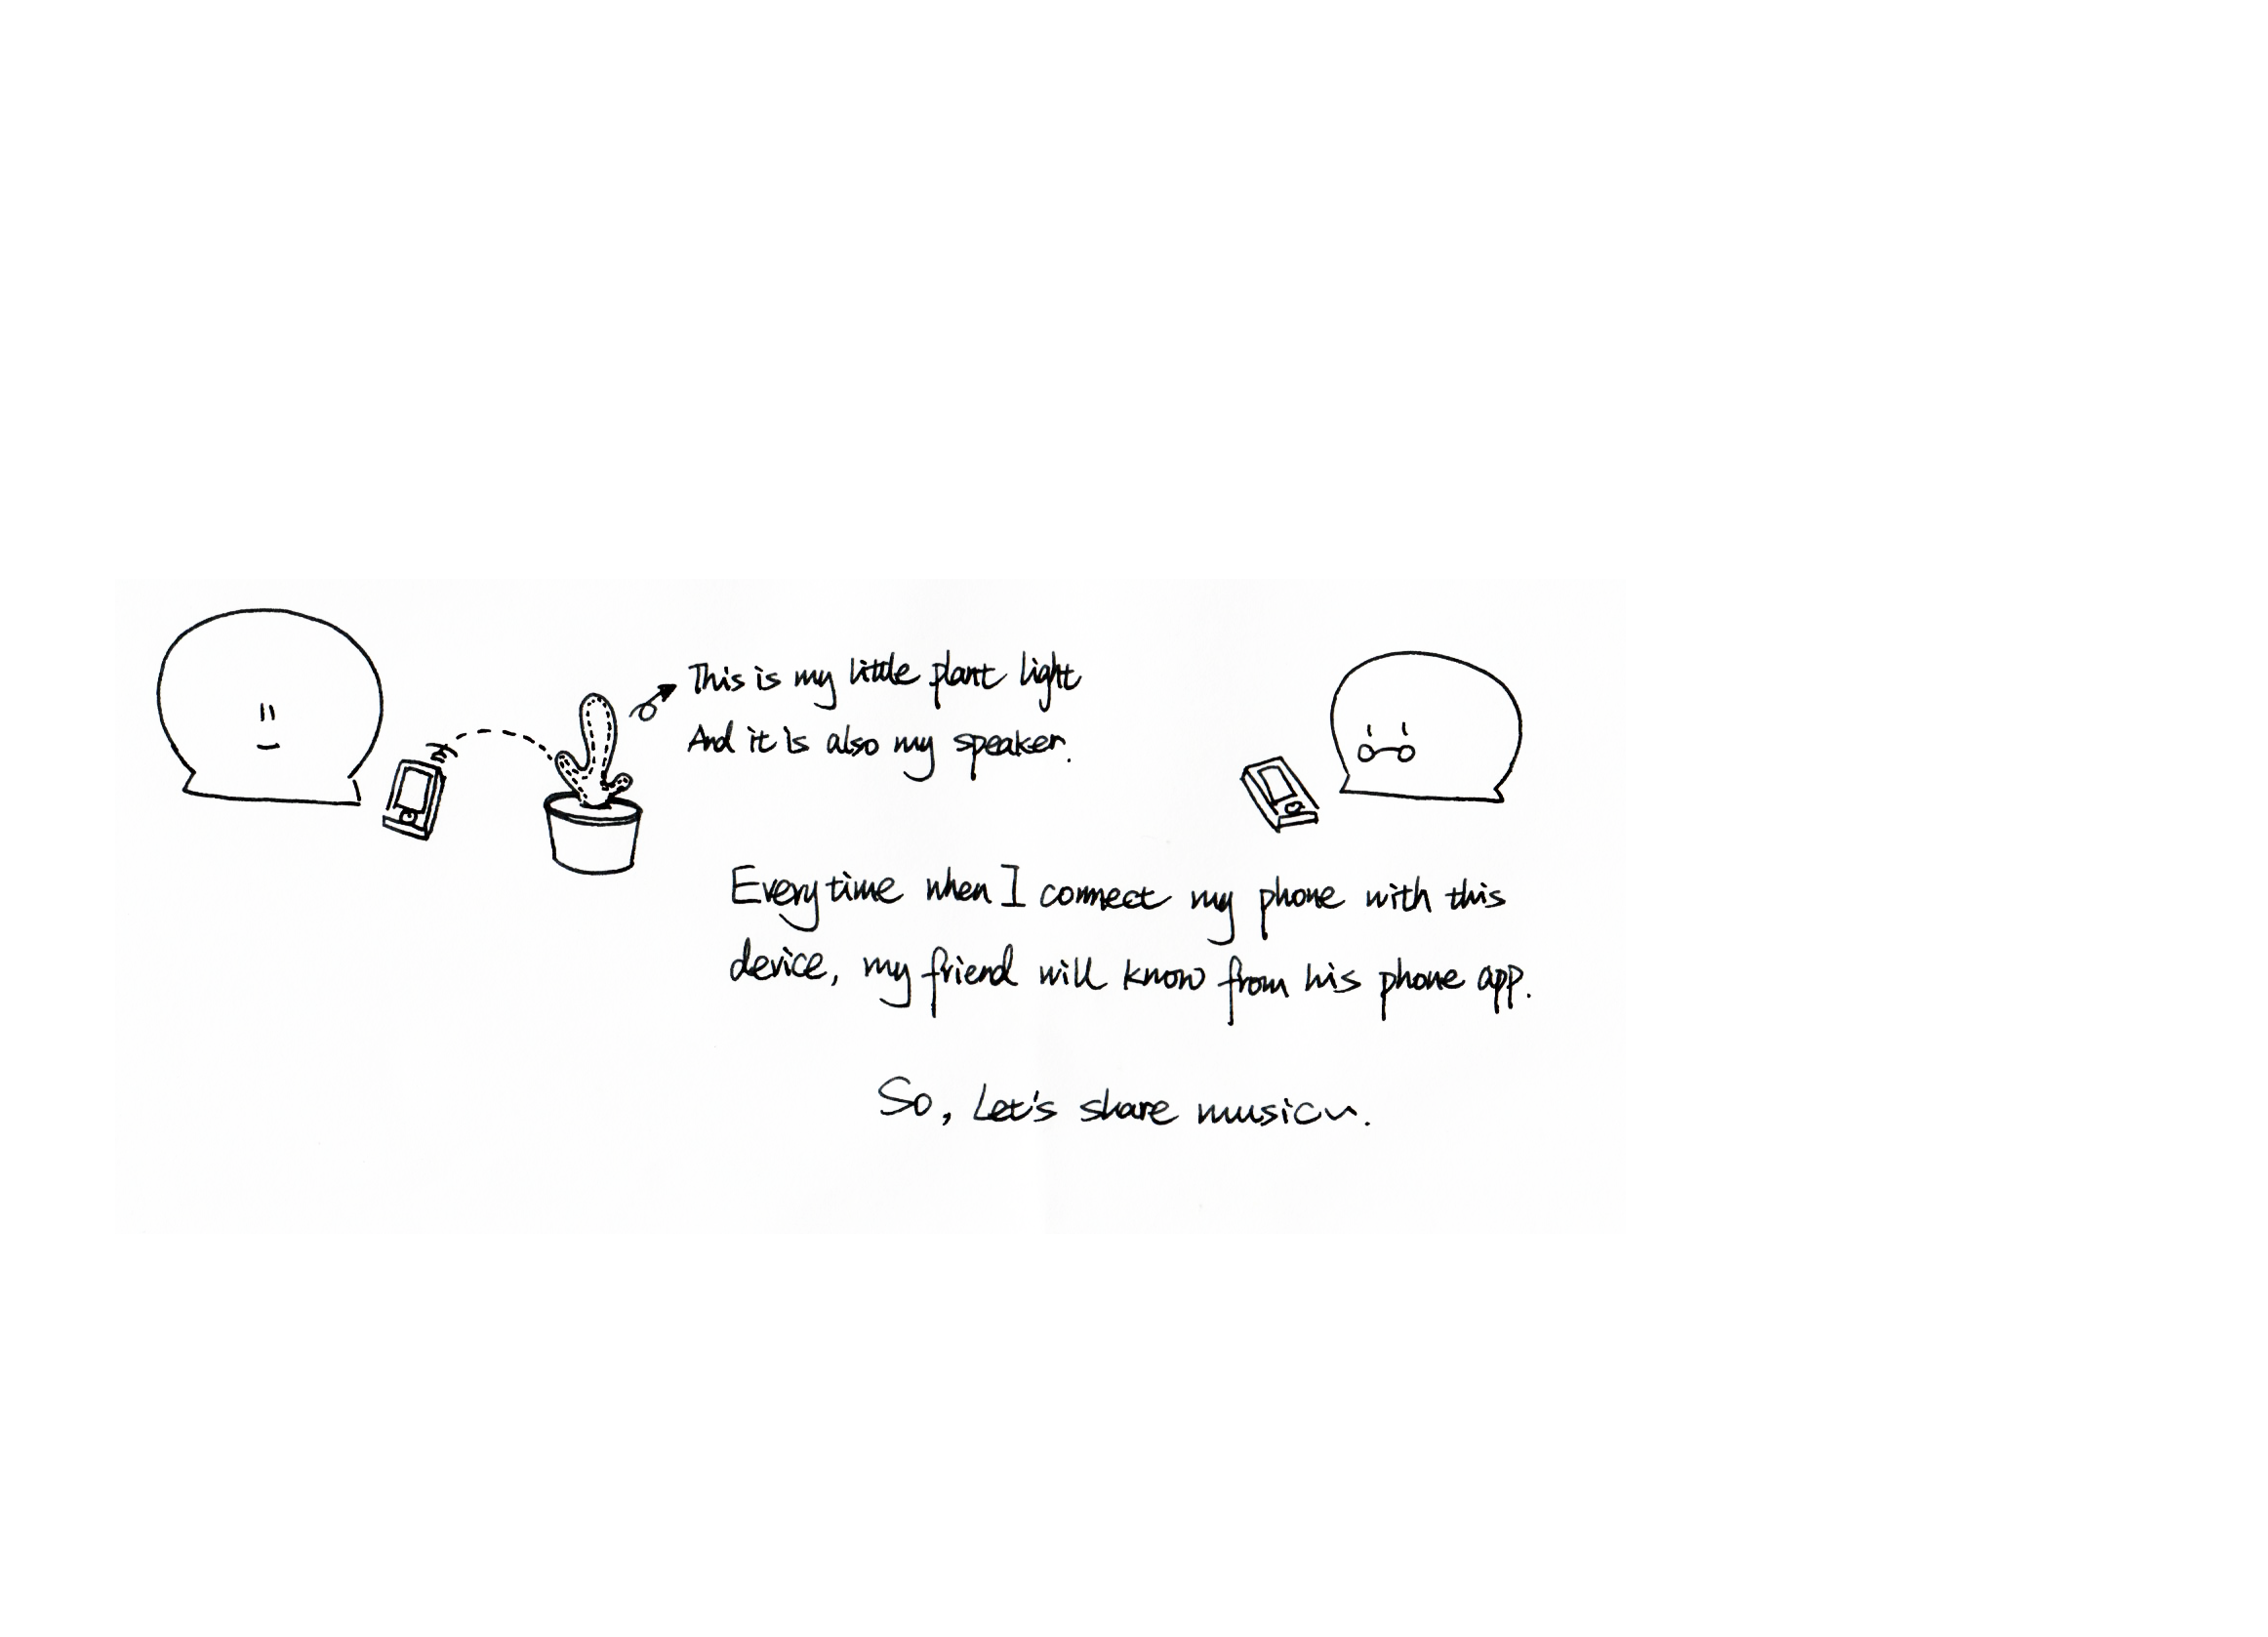 This is my little plant light
And it is also my speaker.
Every time when I connect my phone with this
device, my friend will know from his phone app.
So, Let's share music~.